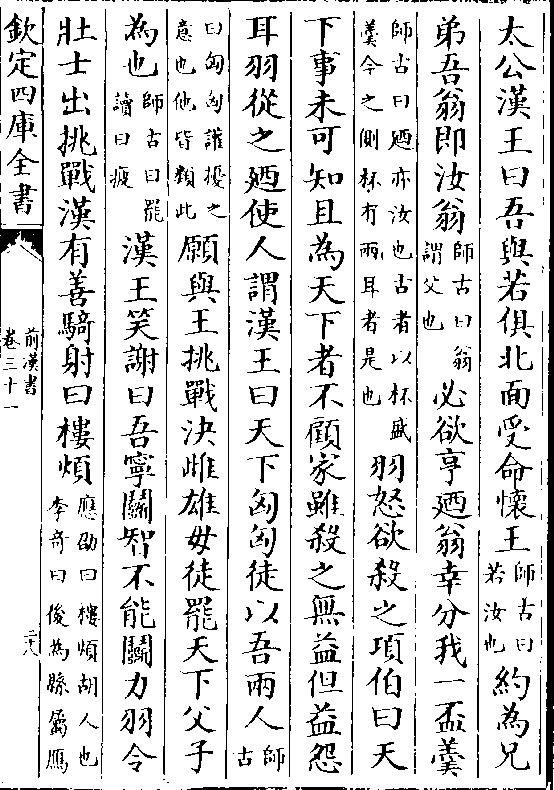 太公漢王曰吾與若俱北面受命懷王師古曰若汝也約為兄
弟吾翁即汝翁師古曰翁謂父也必欲亨廼翁幸分我一盃羹
師古曰廼亦汝也古者以杯盛羹今之側杯有兩耳者是也羽怒欲殺之項伯曰天
下事未可知且為天下者不顧家雖殺之無益但益怨
耳羽從之廼使人謂漢王曰天下匈匈徒以吾兩人師古
曰匈匈讙擾之意也他皆類此願與王挑戰決雌雄毋徒罷天下父子
為也師古曰罷讀曰疲漢王笑謝曰吾寧鬭智不能鬭力羽令
壯士出挑戰漢有善騎射曰樓煩應劭曰樓煩胡人也李奇曰後為縣屬鴈
欽定四庫全書
前漢書
卷三十一
二八